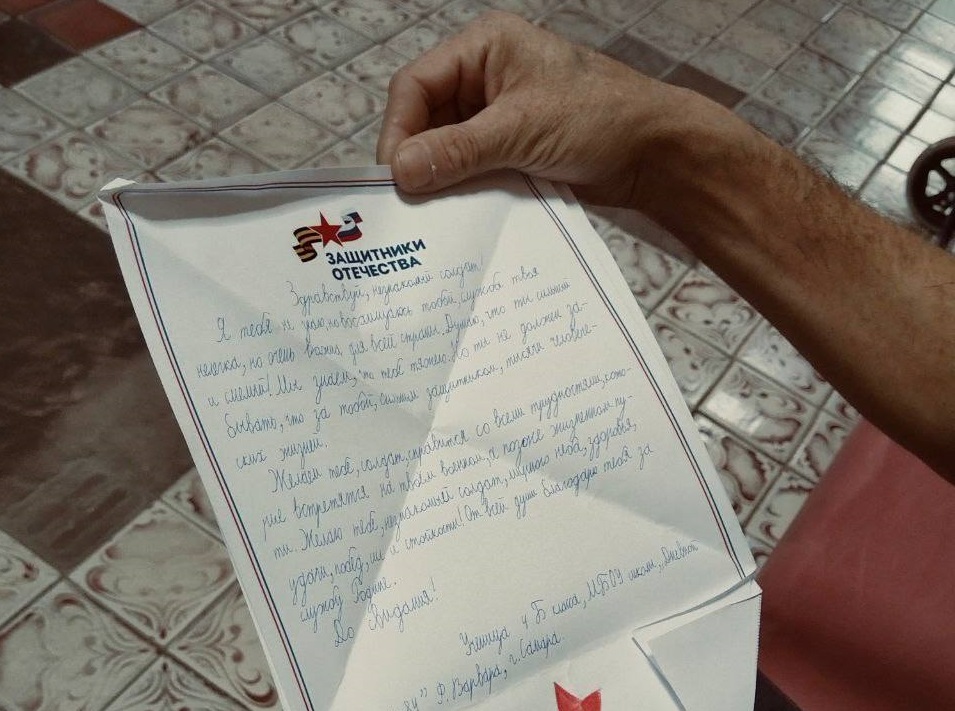 ЗАЩИТНИКИ
ОТЕЧЕСТВА
Здравствуй, незнакомый солдат!
Я тебя не знаю, но восхищаюсь тобой, служба твоя
нелегка, но очень важна для всей страны. Думаю, что ты сильный
и смелый! Мы знаем, что тебе тяжело. Но ты не должен за-
бывать, что за тобой, сильным защитником, тысячи человече-
ских жизней.
Желаем тебе, солдат, справится со всеми трудностями, кото-
рые встретятся на твоём военном, а позже жизненном пу-
ти. Желаю тебе, незнакомый солдат, мирного неба, здоровья,
удачи, побед, и стойкости! От всей души благодарю тебя за
службу Родине.
До Свидания!
Ученица 4 Б класса, МБОУ школы
84" Ф. Варвара, г. Самара.